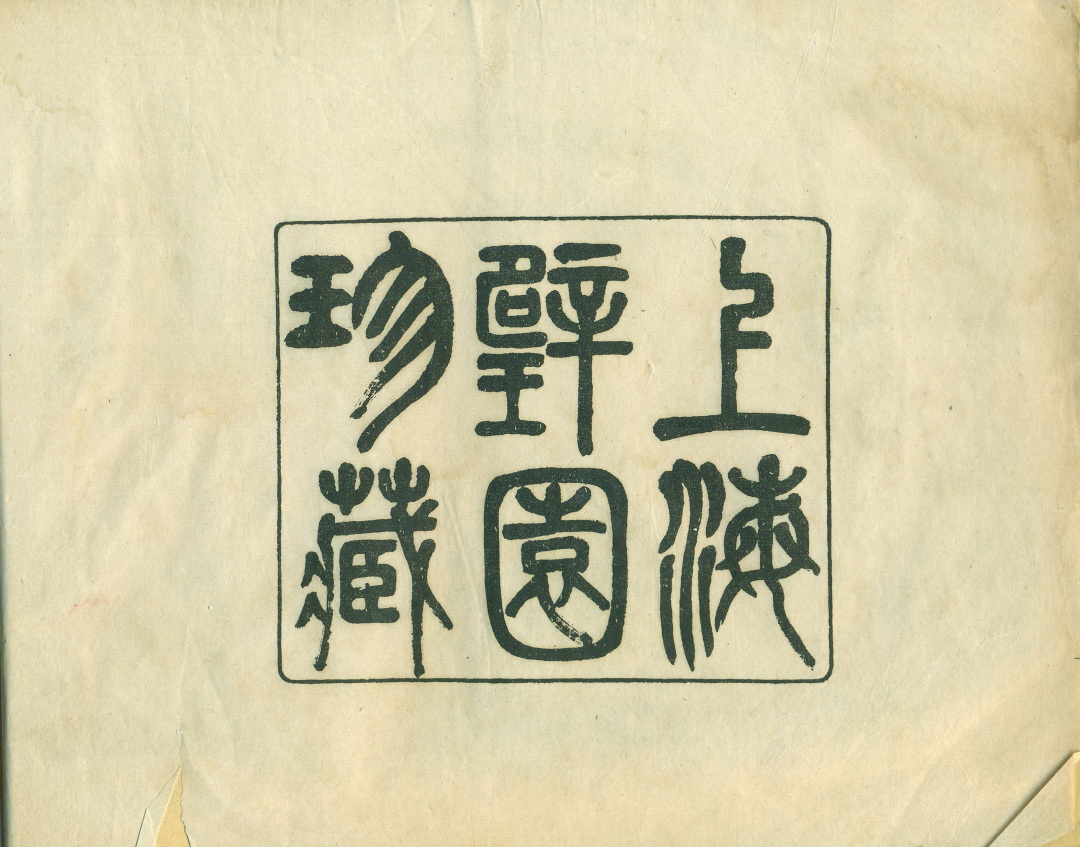 上海
璧園
珍藏